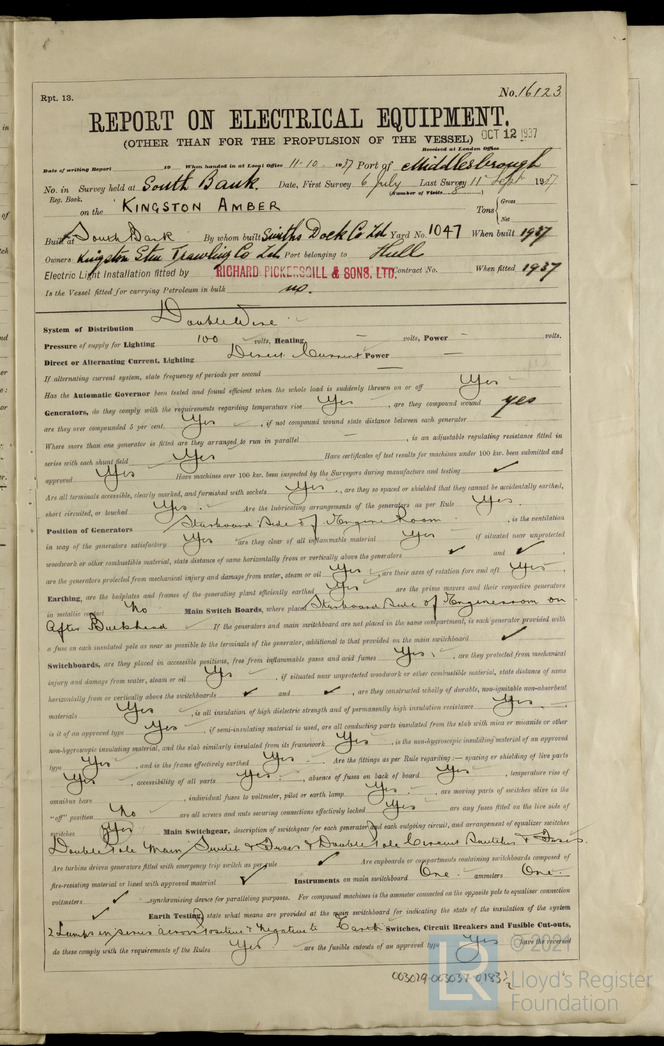 Rpt. 13.
No. 16123
REPORT ON ELECTRICAL EQUIPMENT.
(OTHER THAN FOR THE PROPULSION OF THE VESSEL)
OCT 12 1937
Received at London Office
Date of writing Report 19 When handed in at Local Office 11-10-1937 Port of Middlesbrough
No. in Survey held at South Bank. Date, First Survey 6 July Last Survey 11 Sept 1937
Reg. Book. (Number of Visits 8)
on the KINGSTON AMBER Tons { Gross
Net
Built at South Bank By whom built Smiths Dock Co Ltd Yard No. 1047 When built 1937
Owners Kingston Stm Trawling Co Ltd. Port belonging to Hull
Electric Light Installation fitted by RICHARD PICKERSGILL & SONS, LTD. Contract No. When fitted 1937
Is the Vessel fitted for carrying Petroleum in bulk no.
System of Distribution Double Wire
Pressure of supply for Lighting 100 volts, Heating, — volts, Power — volts.
Direct or Alternating Current, Lighting Direct Current Power —
If alternating current system, state frequency of periods per second —
Has the Automatic Governor been tested and found efficient when the whole load is suddenly thrown on or off Yes
Generators, do they comply with the requirements regarding temperature rise Yes, are they compound wound yes
are they over compounded 5 per cent. Yes, if not compound wound state distance between each generator
Where more than one generator is fitted are they arranged to run in parallel —, is an adjustable regulating resistance fitted in
series with each shunt field Yes Have certificates of test results for machines under 100 kw. been submitted and
approved Yes Have machines over 100 kw. been inspected by the Surveyors during manufacture and testing ✓
Are all terminals accessible, clearly marked, and furnished with sockets Yes, are they so spaced or shielded that they cannot be accidentally earthed,
short circuited, or touched Yes. Are the lubricating arrangements of the generators as per Rule Yes.
Position of Generators Starboard Side of Engine Room, is the ventilation
in way of the generators satisfactory Yes are they clear of all inflammable material Yes if situated near unprotected
woodwork or other combustible material, state distance of same horizontally from or vertically above the generators ✓ and ✓,
are the generators protected from mechanical injury and damage from water, steam or oil Yes, are their axes of rotation fore and aft Yes
Earthing, are the bedplates and frames of the generating plant efficiently earthed Yes are the prime movers and their respective generators
in metallic contact No Main Switch Boards, where placed Starboard Side of Engineroom on
After Bulkhead If the generators and main switchboard are not placed in the same compartment, is each generator provided with
a fuse on each insulated pole as near as possible to the terminals of the generator, additional to that provided on the main switchboard ✓
Switchboards, are they placed in accessible positions, free from inflammable gases and acid fumes Yes, are they protected from mechanical
injury and damage from water, steam or oil Yes, if situated near unprotected woodwork or other combustible material, state distance of same
horizontally from or vertically above the switchboards ✓ and ✓, are they constructed wholly of durable, non-ignitable non-absorbent
materials Yes, is all insulation of high dielectric strength and of permanently high insulation resistance Yes,
is it of an approved type Yes, if semi-insulating material is used, are all conducting parts insulated from the slab with mica or micanite or other
non-hygroscopic insulating material, and the slab similarly insulated from its framework Yes, is the non-hygroscopic insulating material of an approved
type Yes, and is the frame effectively earthed Yes. Are the fittings as per Rule regarding:— spacing or shielding of live parts
Yes, accessibility of all parts Yes, absence of fuses on back of board Yes, temperature rise of
omnibus bars, individual fuses to voltmeter, pilot or earth lamp Yes, are moving parts of switches alive in the
"off" position No are all screws and nuts securing connections effectively locked Yes are any fuses fitted on the live side of
switches Yes Main Switchgear, description of switchgear for each generator and each outgoing circuit, and arrangement of equalizer switches
Double Pole Main Switch & Fuses & Double Pole Circuit Switches & Fuses.
Are turbine driven generators fitted with emergency trip switch as per rule ✓ Are cupboards or compartments containing switchboards composed of
fire-resisting material or lined with approved material ✓ Instruments on main switchboard One ammeters One
voltmeters ✓ synchronising device for paralleling purposes. For compound machines is the ammeter connected on the opposite pole to equaliser connection
✓ Earth Testing, state what means are provided at the main switchboard for indicating the state of the insulation of the system
2 Lamps in series across Positive & Negative to Earth Switches, Circuit Breakers and Fusible Cut-outs,
do these comply with the requirements of the Rules Yes are the fusible cutouts of an approved type Yes have the reversed
003029-003037-0183½
© 2021
LR Lloyd's Register
Foundation